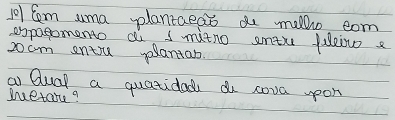 1º) Em uma plantação de milho com
espaçamento de 1 mitro entre fileira e
20 cm entre plantas.
a) Qual a quatidade de cova por
hectare?